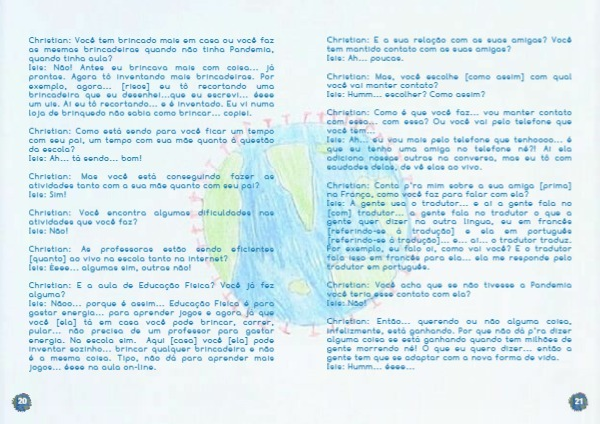 Christian: Você tem brincado mais em casa ou você faz
as mesmas brincadeiras quando não tinha Pandemia,
quando tinha aula?
Isis: Não! Antes eu brincava mais com coisa... já
prontas. Agora tô inventando mais brincadeiras. Por
exemplo, agora... [risos] eu tô recortando uma
brincadeira que eu desenhei...que eu escrevi... éese
um uis. Ai eu tô recortando... e é inventado. Eu vi numa
loja de brinquedo não sabia como brincar... copiei.
Christian: Como está sendo para você ficar um tempo
com seu pai, um tempo com sua mãe quanto à questão
da escola?
Isis: Ah... tá sendo... bom!
Christian: Mas você está conseguindo fazer as
atividades tanto com a sua mãe quanto com seu pai?
Isis: Sim!
Christian: Você encontra algumas dificuldades nas
atividades que você faz?
Isis: Não!
Christian: As professoras estão sendo eficientes
[quanto] ao vivo na escola tanto na internet?
Isis: Éese... algumas sim, outras não!
Christian: E a aula de Educação Física? Você já fez
alguma?
Isis: Nãoo... porque é assim... Educação Física é para
gastar energia... para aprender jogos e agora já que
você [ela] tá em casa você pode brincar, correr,
pular... não precisa de um professor para gastar
energia. Na escola sim. Aqui [casa] você [ela] pode
inventar sozinho... brincar qualquer brincadeira e não
é a mesma coisa. Tipo, não dá para aprender mais
jogos... éese na aula on-line.
20
Christian: E a sua relação com as suas amigas? Você
tem mantido contato com as suas amigas?
Isis: Ah... poucas.
Christian: Mas, você escolhe [como assim] com qual
você vai manter contato?
Isis: Humm... escolher? Como assim?
Christian: Como é que você faz... vou manter contato
com essa... com essa? Ou você vai pelo telefone que
você tem...
Isis: Ah... eu vou mais pelo telefone que tenhoooo... é
que eu tenho uma amiga no telefone né?! Ai ela
adiciona nossas outras na conversa, mas eu tô com
saudades delas, de vê elas ao vivo.
Christian: Conta p'ra mim sobre a sua amiga [prima]
na França, como você faz para falar com ela?
Isis: A gente usa o tradutor... e ai a gente fala no
[com] tradutor... a gente fala no tradutor o que a
gente quer dizer na outra língua, eu em francês
[referindo-se à tradução] e ela em português
[referindo-se à tradução]... e... ai... o tradutor traduz.
Por exemplo, eu falo oi, como vai você? E o tradutor
fala isso em francês para ela... ela me responde pelo
tradutor em português.
Christian: Você acha que se não tivesse a Pandemia
você teria esse contato com ela?
Isis: Não!
Christian: Então... querendo ou não alguma coisa,
infelizmente, está ganhando. Por que não dá p'ra dizer
alguma coisa se está ganhando quando tem milhões de
gente morrendo né! O que eu quero dizer... então a
gente tem que se adaptar com a nova forma de vida.
Isis: Humm... éese...
21